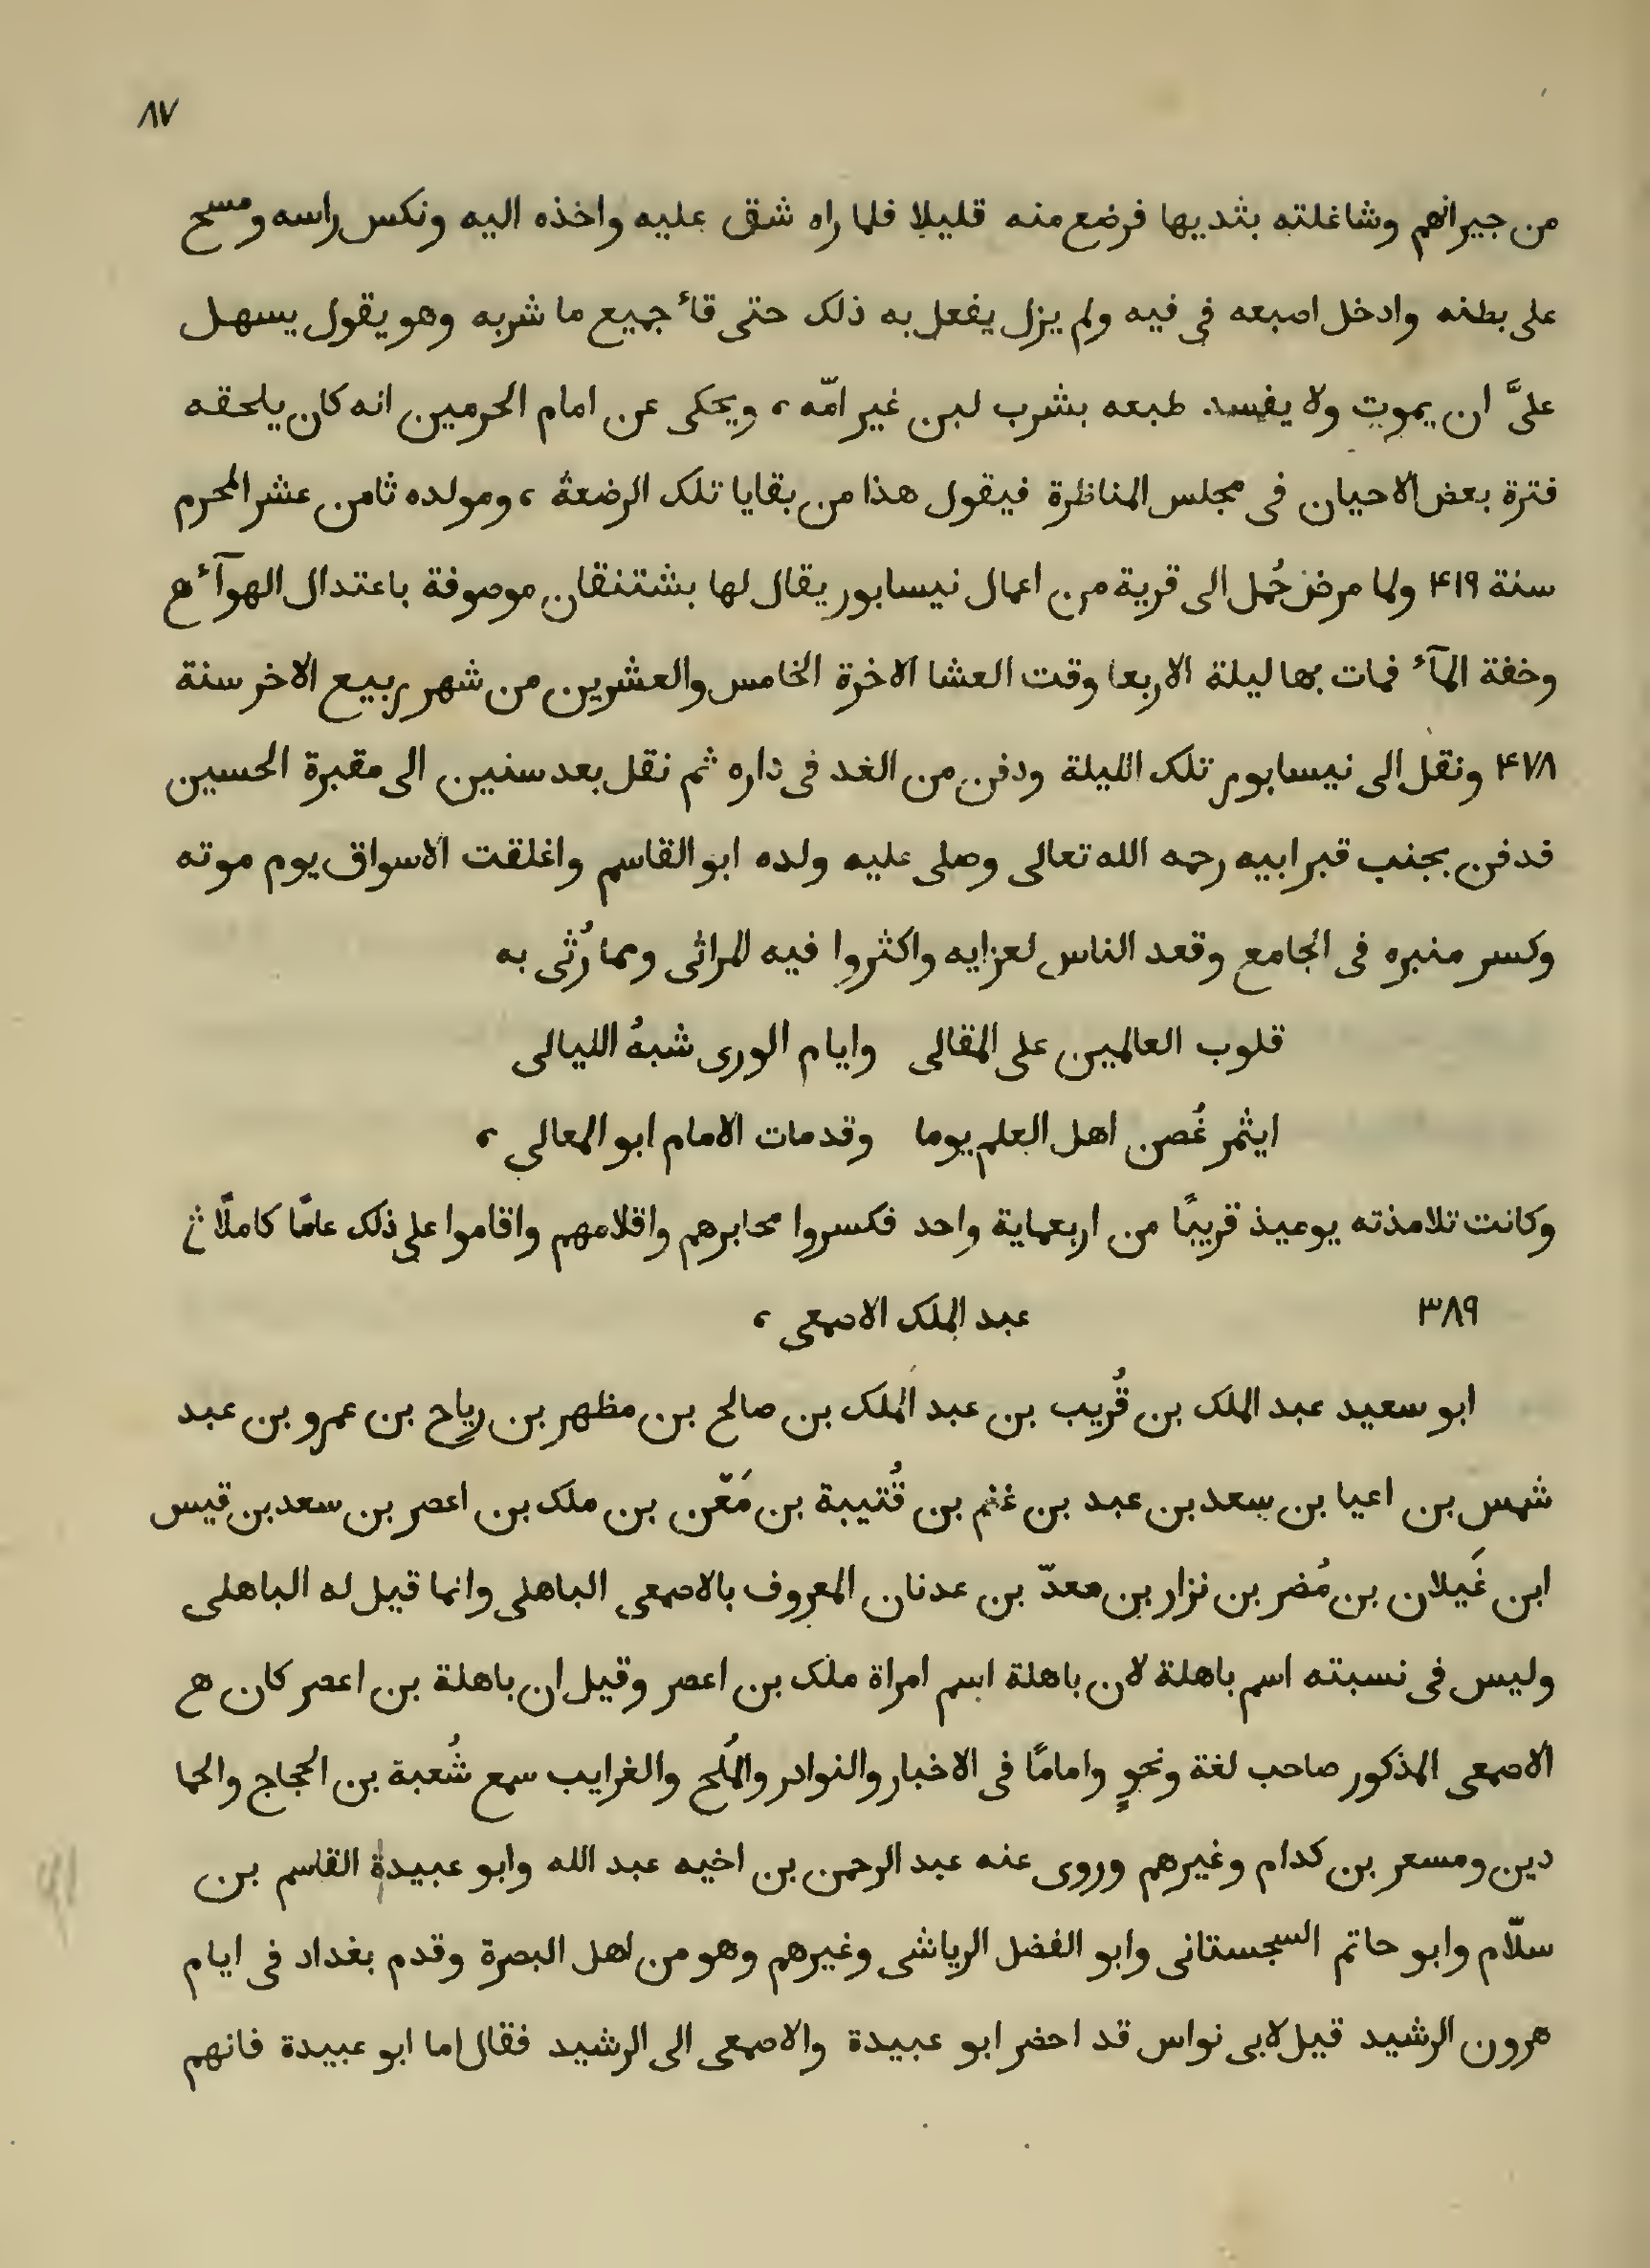 ٨٧
من جيرانهم وشاغلته بثديها فرضع منه قليلا فلما راه شق عليه واخذه اليه ونكس راسه ومسح
على بطنه وادخل اصبعه فى فيه ولم يزل يفعل به ذلك حتى قاء جميع ما شربه وهو يقول يسهل
علىَّ ان يموت ولا يفسد طبعه بشرب لبن غير امّه ، ويحكى عن امام الحرمين انه كان يلحقه
فترة بعض الاحيان فى مجلس المناظرة فيقول هذا من بقايا تلك الرضعة ، ومولده ثامن عشر المحرم
سنة ۴١٩ ولما مرض حُمل الى قرية من اعمال نيسابور يقال لها بشتنقان موصوفة باعتدال الهوآء
وخفة المآء فمات بها ليلة الاربعا وقت العشا الاخرة الخامس والعشرين من شهر ربيع الاخر سنة
۴٧٨ ونقل الى نيسابور تلك الليلة ودفن من الغد فى داره ثم نقل بعد سنين الى مقبرة الحسين
فدفن بجنب قبر ابيه رحمه الله تعالى وصلى عليه ولده ابو القاسم واغلقت الاسواق يوم موته
وكسر منبره فى الجامع وقعد الناس لعزايه واكثروا فيه المراثى ومما رُثى به
قلوب العالمين على المقالى وايام الورى شبهُ الليالى
ايثمر غُصن اهل العلم يوما وقد مات الامام ابو المعالى ،
وكانت تلامذته يوميذ قريبًا من اربعماية واحد فكسروا محابرهم واقلامهم واقاموا على ذلك عامًا كاملًا
٣٨٩ عبد الملك الاصمعى ،
ابو سعيد عبد الملك بن قُريب بن عبد الملك بن صالح بن مظهر بن رياح بن عمرو بن عبد
شمس بن اعيا بن سعد بن عبد بن غنم بن قُتيبة بن مَعْن بن ملك بن اعصر بن سعد بن قيس
ابن غَيلان بن مُضر بن نزار بن معدّ بن عدنان المعروف بالاصمعى الباهلى وانما قيل له الباهلى
وليس فى نسبته اسم باهلة لان باهلة اسم امراة ملك بن اعصر وقيل ان باهلة بن اعصر كان
الاصمعى المذكور صاحب لغة ونحوٍ وامامًا فى الاخبار والنوادر والمُلح والغرايب سمع شُعبة بن الحجاج والحما
دين ومسعر بن كدام وغيرهم وروى عنه عبد الرحمن بن اخيه عبد الله وابو عبيدة القاسم بن
سلّام وابو حاتم السجستانى وابو الفضل الرياشى وغيرهم وهو من اهل البصرة وقدم بغداد فى ايام
هرون الرشيد قيل لابى نواس قد احضر ابو عبيدة والاصمعى الى الرشيد فقال اما ابو عبيدة فانهم